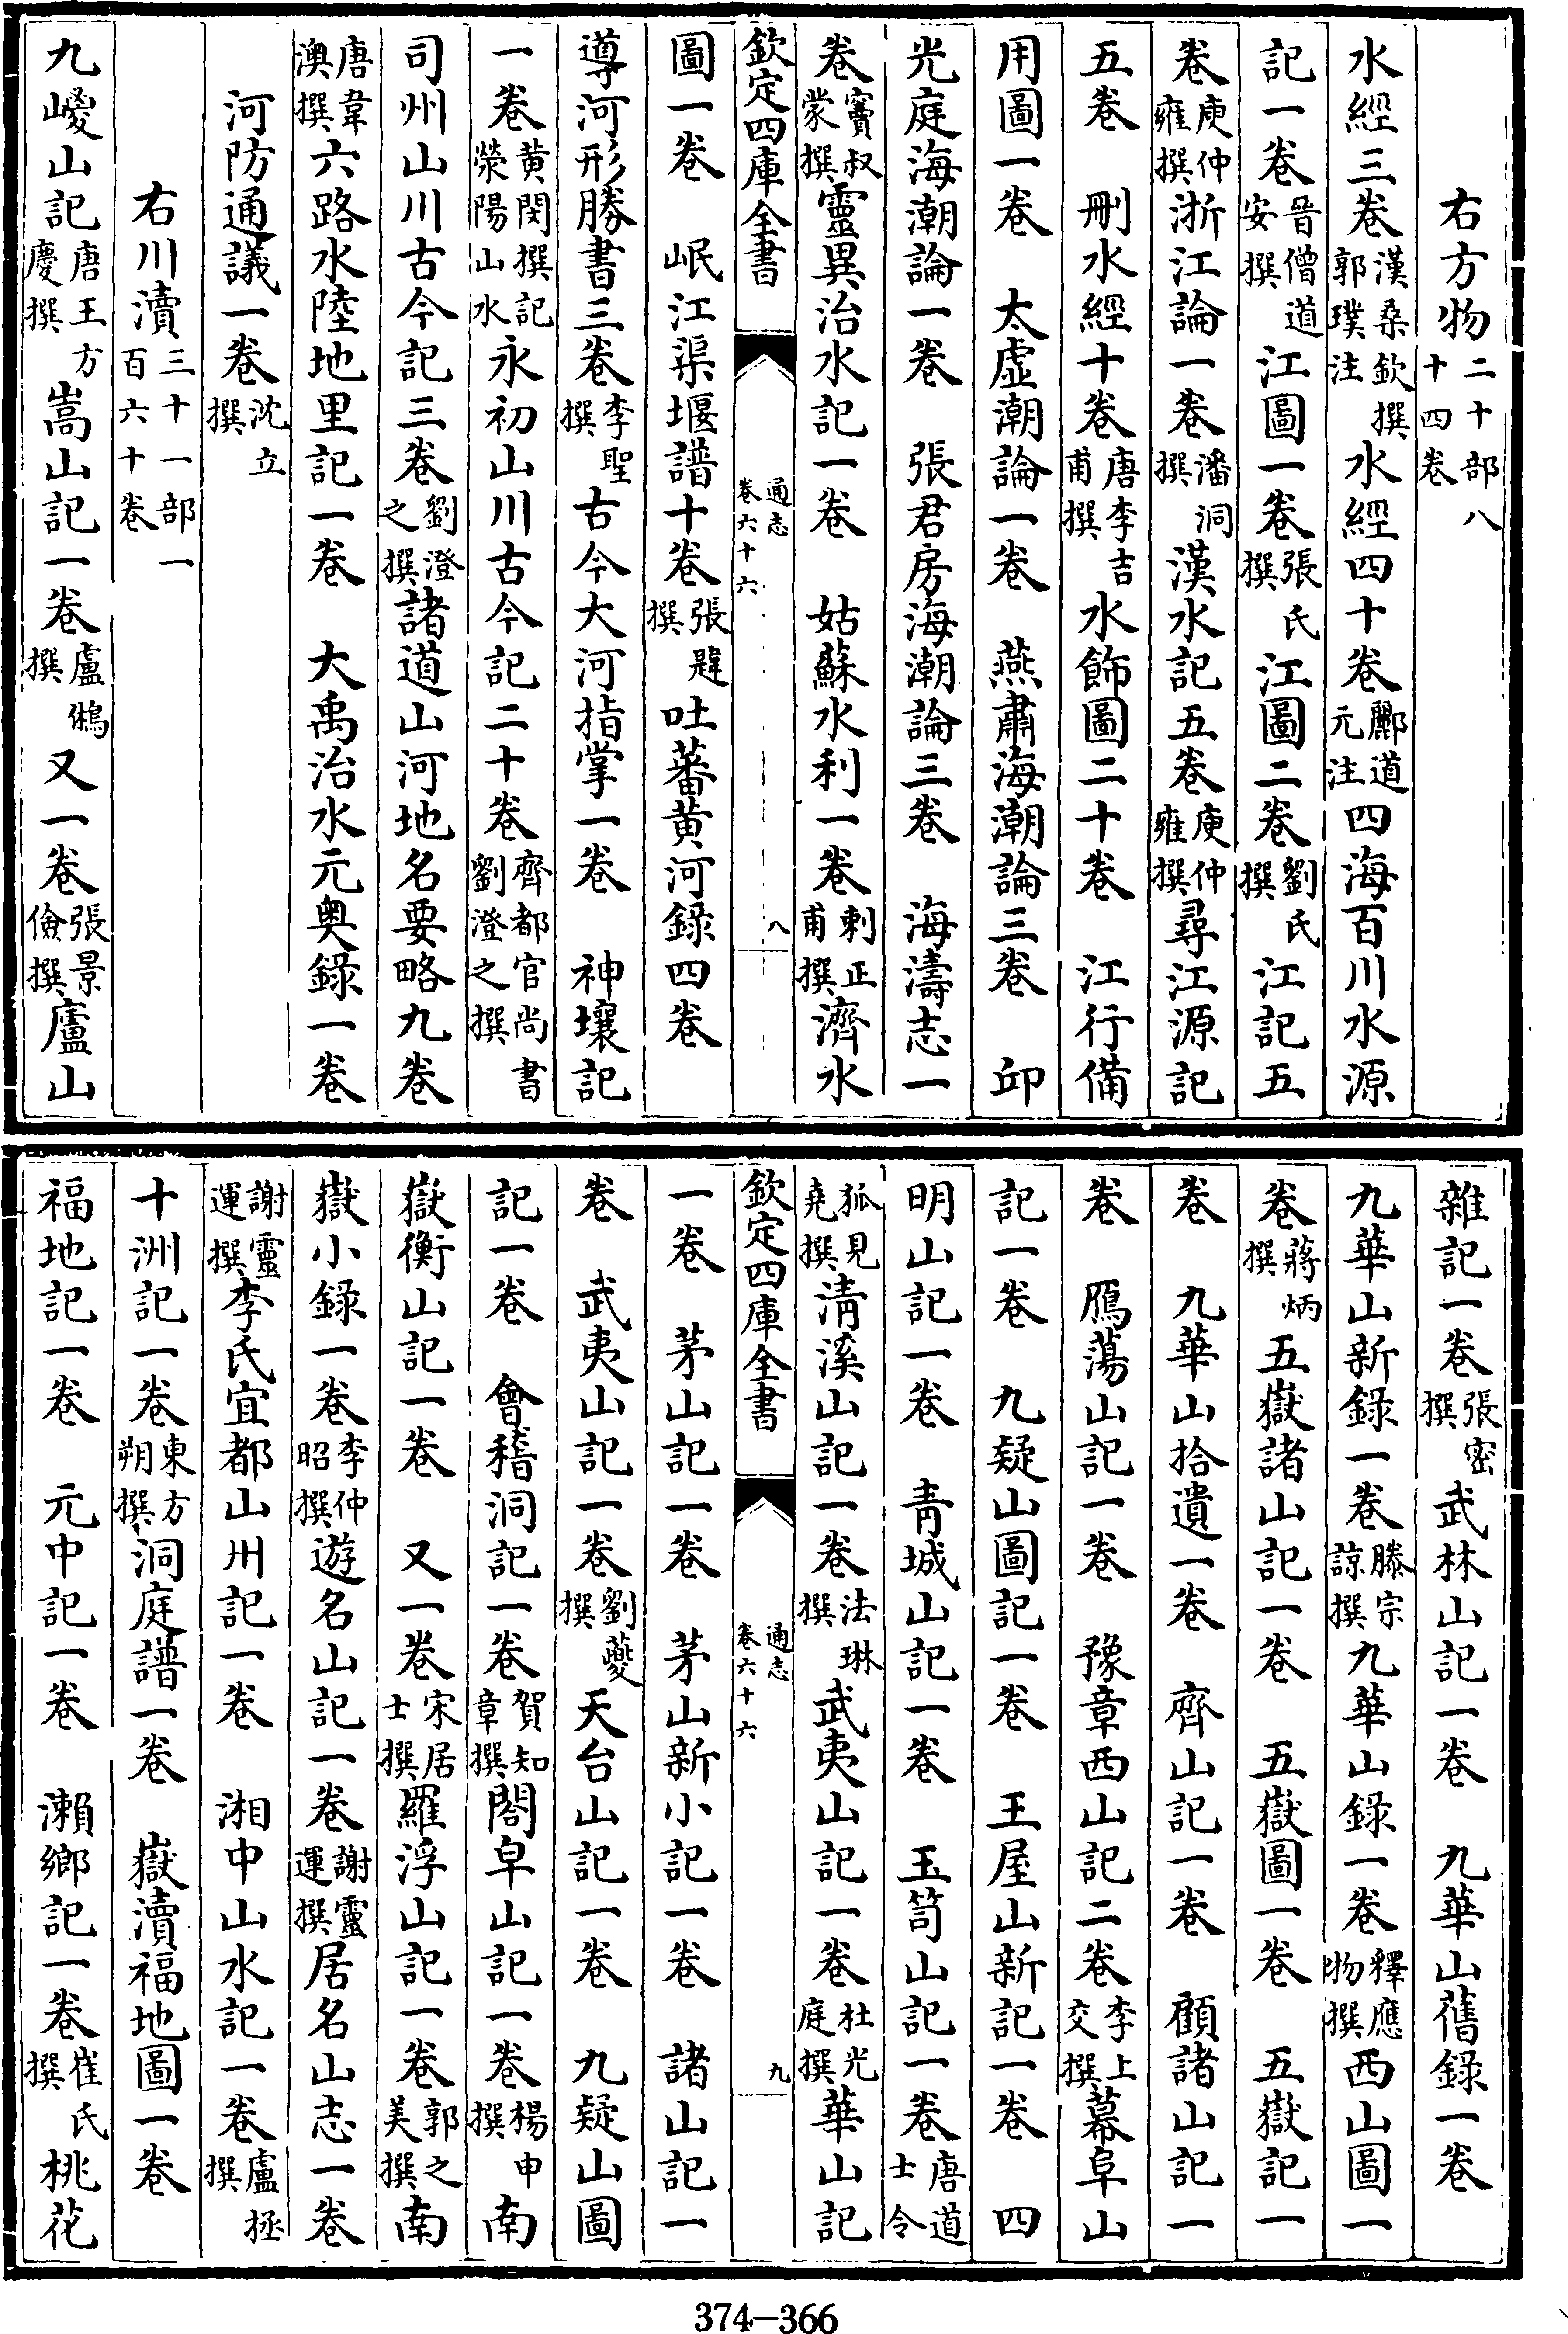 右方物二十部八十四卷
水經三卷漢桑欽撰郭璞注水經四十卷酈道元注四海百川水源
記一卷晉僧道安撰江圖一卷張氏撰江圖二卷劉氏撰江記五
卷庾仲雍撰浙江論一卷潘洞撰漢水記五卷庾仲雍撰尋江源記
五卷　刪水經十卷唐李吉甫撰水飾圖二十卷　江行備
用圖一卷　太虛潮論一卷　燕肅海潮論三卷　邱
光庭海潮論一卷　張君房海潮論三卷　海濤志一
卷竇叔蒙撰靈異治水記一卷　姑蘇水利一卷郟正甫撰濟水
欽定四庫全書　通志卷六十六　八
圖一卷　岷江渠堰譜十卷張䪙撰吐蕃黃河錄四卷
導河形勝書三卷李聖撰古今大河指掌一卷　神壤記
一卷黃閔撰記滎陽山水永初山川古今記二十卷齊都官尚書劉澄之撰
司州山川古今記三卷劉澄之撰諸道山河地名要略九卷
唐韋澳撰六路水陸地里記一卷　大禹治水元奥錄一卷
河防通議一卷沈立撰
右川瀆三十一部一百六十卷
九嵕山記唐王方慶撰嵩山記一卷盧鵂撰又一卷張景儉撰廬山
雜記一卷張密撰武林山記一卷　九華山舊錄一卷
九華山新錄一卷滕宗諒撰九華山錄一卷釋應物撰西山圖一
卷蔣炳撰五嶽諸山記一卷　五嶽圖一卷　五嶽記一
卷　九華山拾遺一卷　齊山記一卷　顧諸山記一
卷　鴈蕩山記一卷　豫章西山記二卷李上交撰幕阜山
記一卷　九疑山圖記一卷　王屋山新記一卷　四
明山記一卷　青城山記一卷　玉笥山記一卷唐道士令
狐見堯撰清溪山記一卷法琳撰武夷山記一卷杜光庭撰華山記
欽定四庫全書　通志卷六十六　九
一卷　茅山記一卷　茅山新小記一卷　諸山記一
卷　武夷山記一卷劉夔撰天台山記一卷　九疑山圖
記一卷　會稽洞記一卷賀知章撰閤皁山記一卷楊申撰南
嶽衡山記一卷　又一卷宋居士撰羅浮山記一卷郭之美撰南
嶽小錄一卷李仲昭撰遊名山記一卷謝靈運撰居名山志一卷
謝靈運撰李氏宜都山川記一卷　湘中山水記一卷盧拯撰
十洲記一卷東方朔撰洞庭譜一卷　嶽瀆福地圖一卷
福地記一卷　元中記一卷　瀨鄉記一卷崔氏撰桃花
374-366